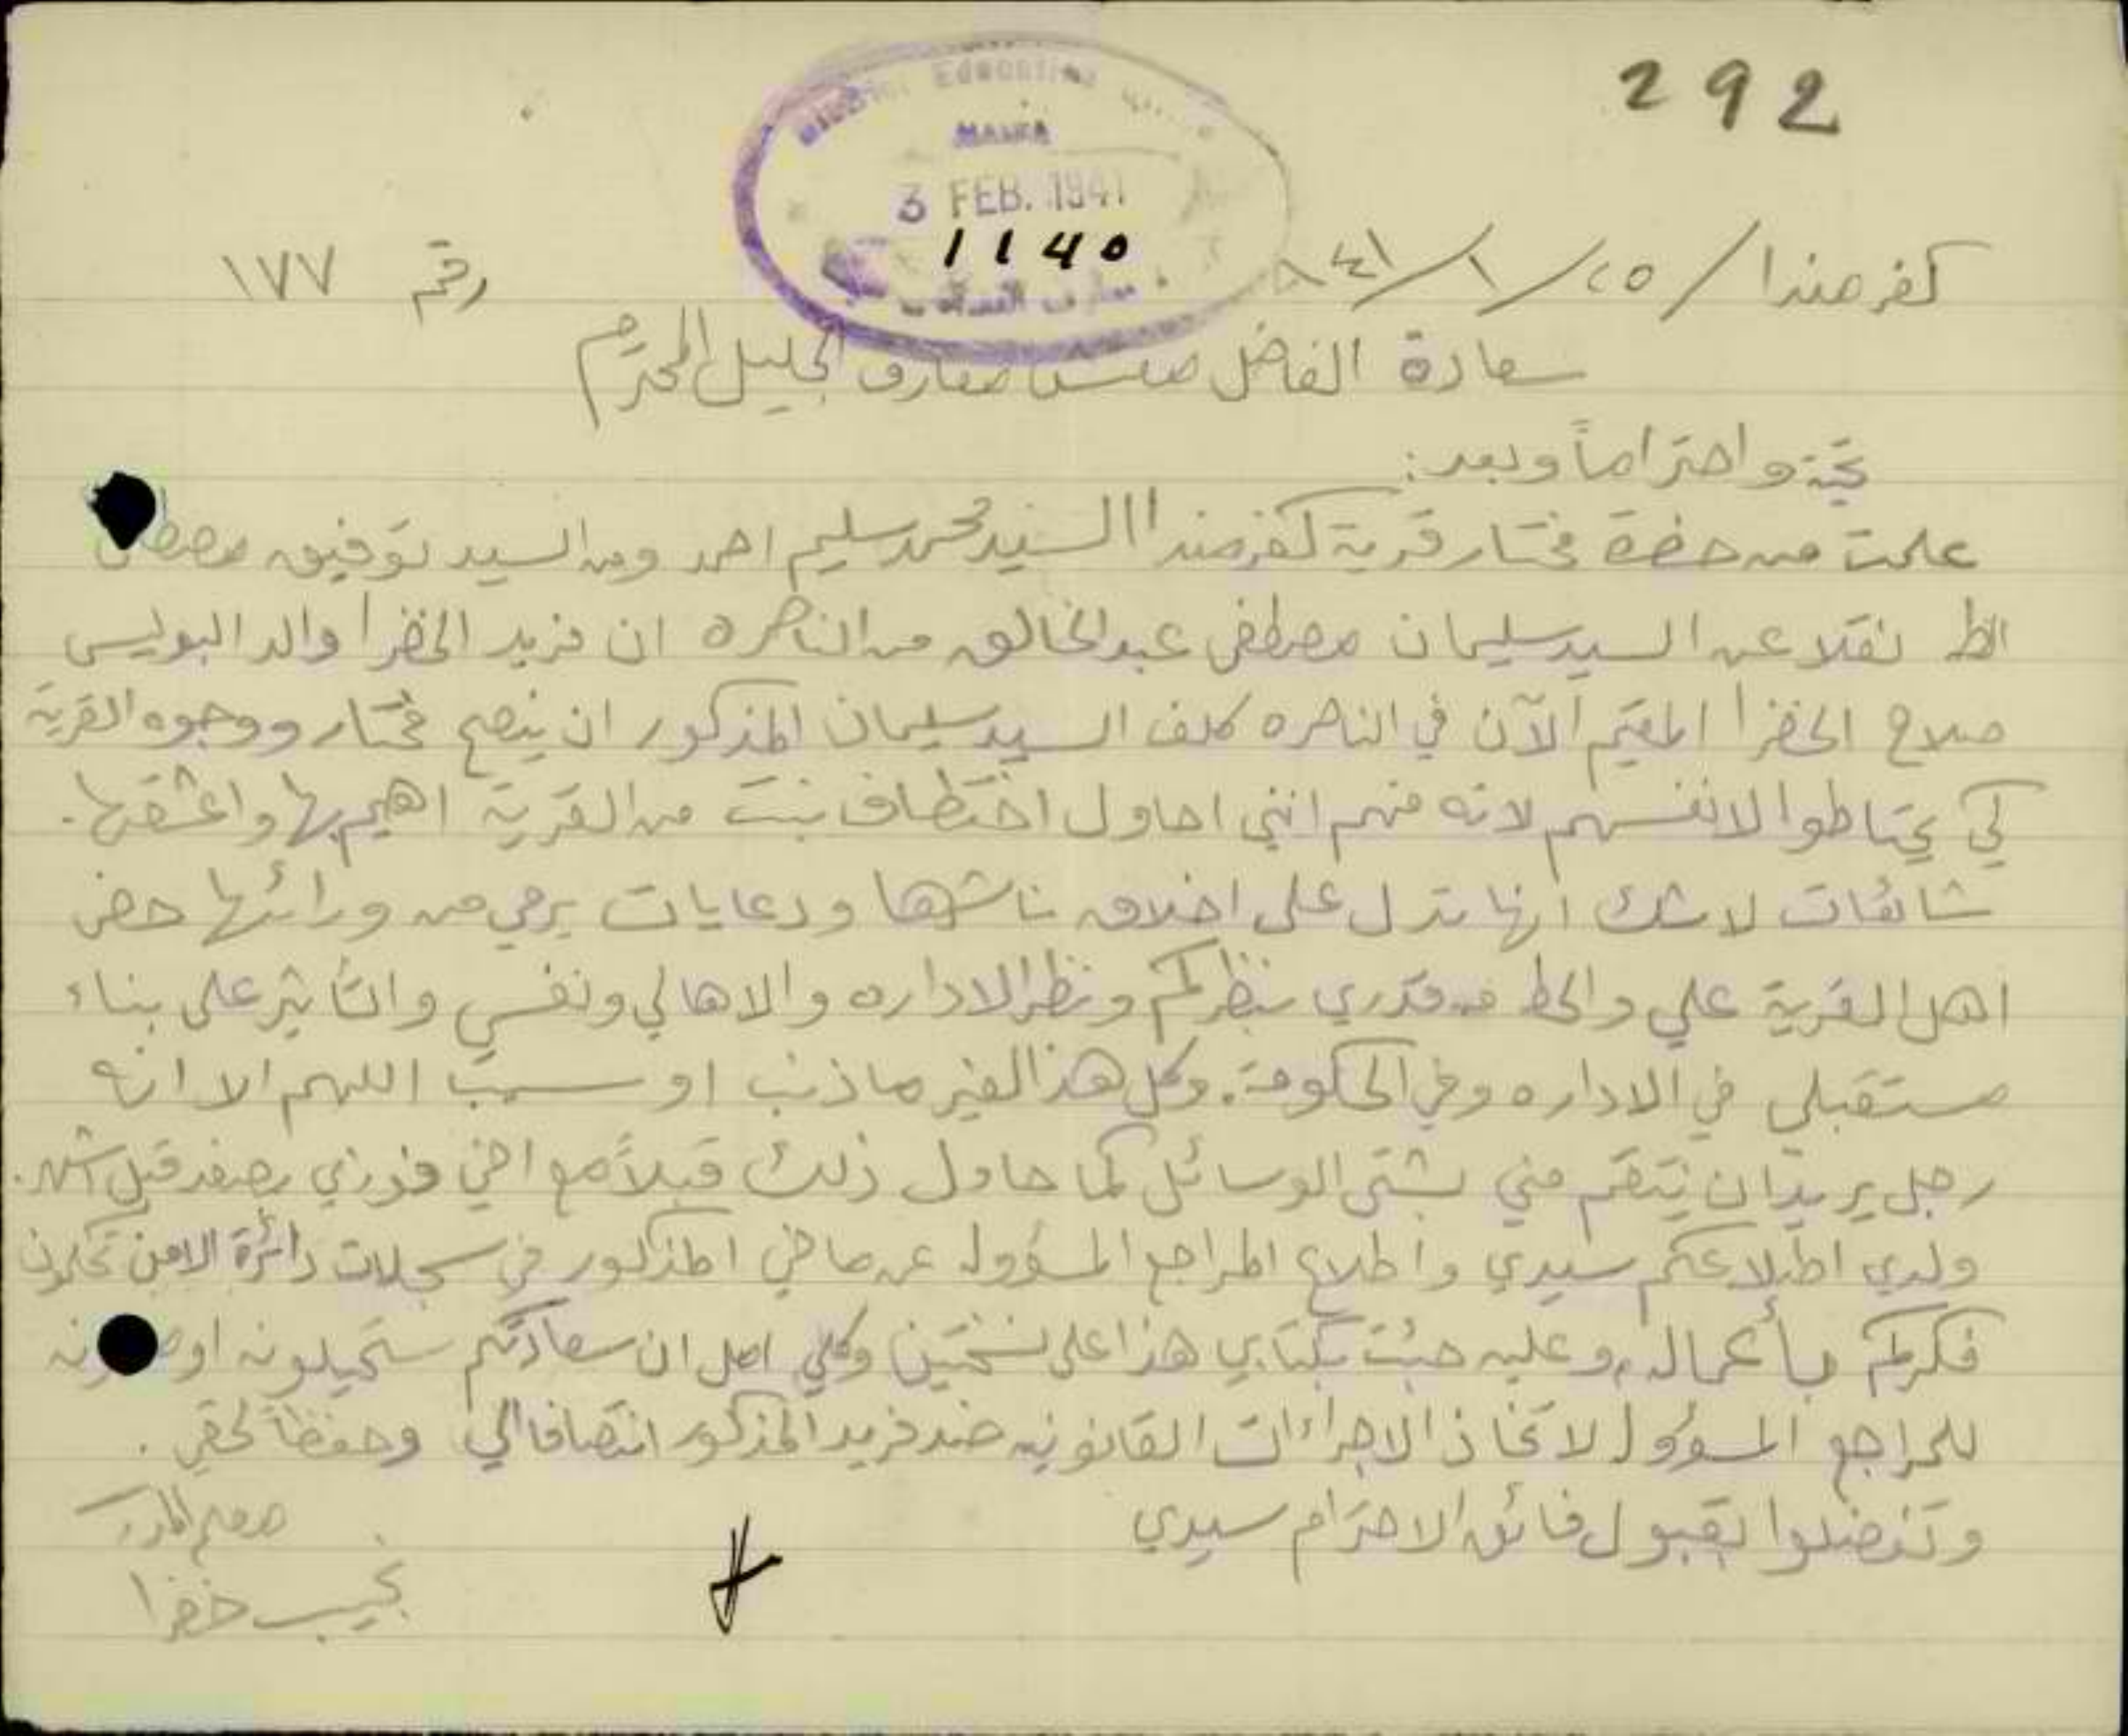 292
District Education
HAIFA
3 FEB. 1941
1140
كفرمندا / ٢٥ / ١ / ٩٤١
رقم ١٧٧
سعادة الفاضل مفتش معارف الجليل المحترم
تحية واحتراماً وبعد:
علمت من حضرة مختار قرية كفرمندا السيد محمد سليم احمد ومن السيد توفيق مصطفى
نقلا عن السيد سليمان مصطفى عبدالخالق من الناصره ان فريد الخضرا والد البوليس
صلاح الخضرا المقيم الآن في الناصره كلف السيد سليمان المذكور ان ينصح مختار ووجوه القرية
كي يحتاطوا لانفسهم لانه فهم انني احاول اختطاف بنت من القرية اهيم بها واعشقها.
شائعات لاشك انها تدل على اخلاق ناشرها ودعايات يرمي من ورائها حض
اهل القرية علي والحط من قدري بنظركم ونظر الاداره والاهالي ونفسي والتأثير على بناء
مستقبلي في الاداره وفي الحكومة. وكل هذا لغير ما ذنب او سبب اللهم الا انه
رجل يريد ان ينتقم مني بشتى الوسائل كما حاول ذلك قبلاً مع اخي فوزي بصفد قبل اشهر.
ولدى اطلاعكم سيدي واطلاع المراجع المسؤوله عن ماضي المذكور في سجلات دائرة الامن تحكمون
فكركم بأعماله, وعليه جئت بكتابي هذا على نسختين وكلي امل ان سعادتكم ستحيلونه
للمراجع المسؤوله لاتخاذ الاجراءات القانونيه ضد فريد المذكور انتصافا لي وحفظاً لحقي.
وتفضلوا بقبول فائق الاحترام سيدي
معلم المدرسة
نجيب خضرا